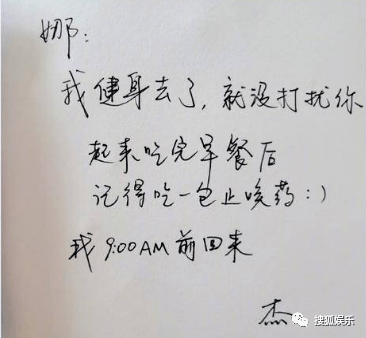 娜:
我健身去了,就没打扰你
起来吃完早餐后
记得吃一包止咳药:)
我9:00AM前回来
杰
搜狐娱乐